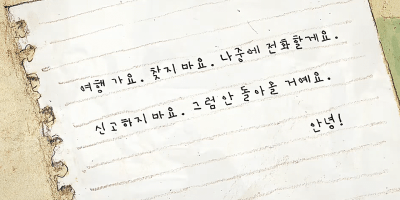 여행 가요. 찾지 마요. 나중에 전화할게요.
신고하지 마요. 그럼 안 돌아올 거예요.
안녕!